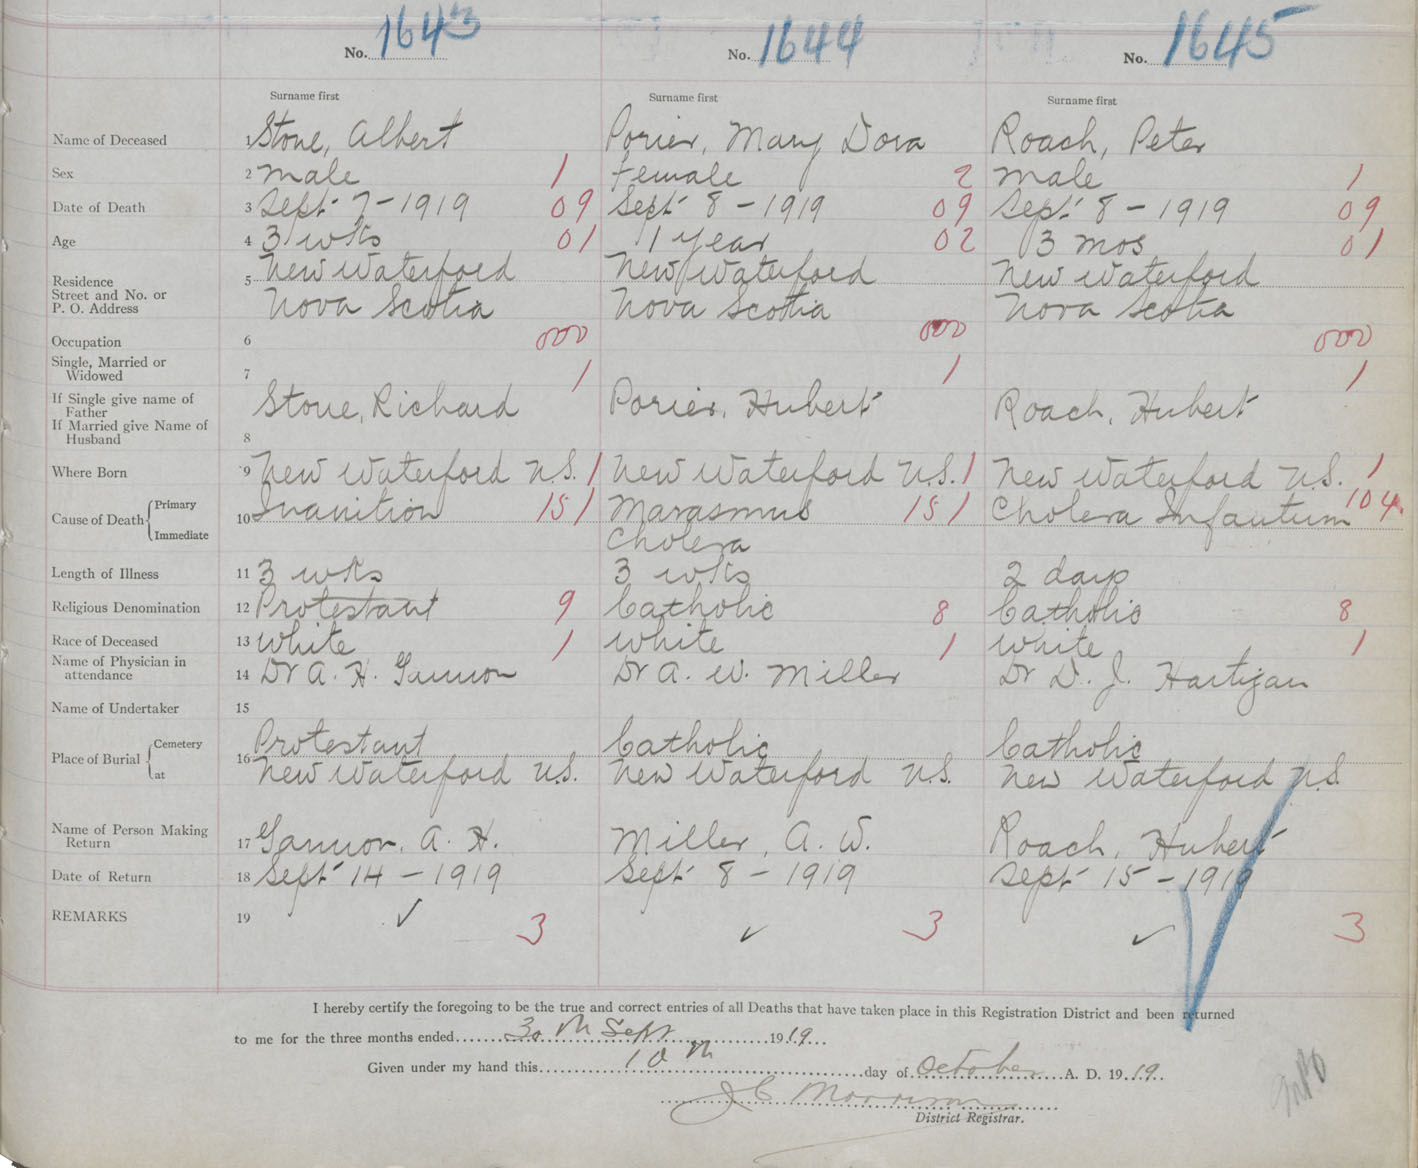 No. 1643 No. 1644 No. 1645
Surname first Surname first Surname first
Name of Deceased 1 Stone, Albert Porier, Mary Dora Roach, Peter
Sex 2 male 1 Female 2 male 1
Date of Death 3 Sept 7 - 1919 09 Sept 8 - 1919 09 Sept 8 - 1919 09
Age 4 3 wks 01 1 year 02 3 mos 01
Residence 5 New Waterford New Waterford New Waterford
Street and No. or
P. O. Address Nova Scotia Nova Scotia Nova Scotia
Occupation 6 000 000 000
Single, Married or
Widowed 7 1 1 1
If Single give name of
Father Stone, Richard Porier, Hubert Roach, Hubert
If Married give Name of
Husband 8
Where Born 9 New Waterford N.S. 1 New Waterford N.S. 1 New Waterford N.S. 1
Cause of Death Primary 10 Inanition 151 Marasmus 151 Cholera Infantum 104.
Immediate Cholera
Length of Illness 11 3 wks 3 wks 2 days
Religious Denomination 12 Protestant 9 Catholic 8 Catholic 8
Race of Deceased 13 white 1 white 1 white 1
Name of Physician in
attendance 14 Dr A. H. Gannon Dr A. W. Miller Dr D. J. Hartigan
Name of Undertaker 15
Place of Burial Cemetery 16 Protestant Catholic Catholic
at New Waterford N.S. New Waterford N.S. New Waterford N.S.
Name of Person Making
Return 17 Gannon, A. H. Miller, A. W. Roach, Hubert
Date of Return 18 Sept 14 - 1919 Sept 8 - 1919 Sept 15 - 1919
REMARKS 19 ✓ 3 ✓ 3 ✓ 3
I hereby certify the foregoing to be the true and correct entries of all Deaths that have taken place in this Registration District and been returned
to me for the three months ended 30th Sept 1919
Given under my hand this 10th day of October A. D. 1919.
J C Morrison
District Registrar.